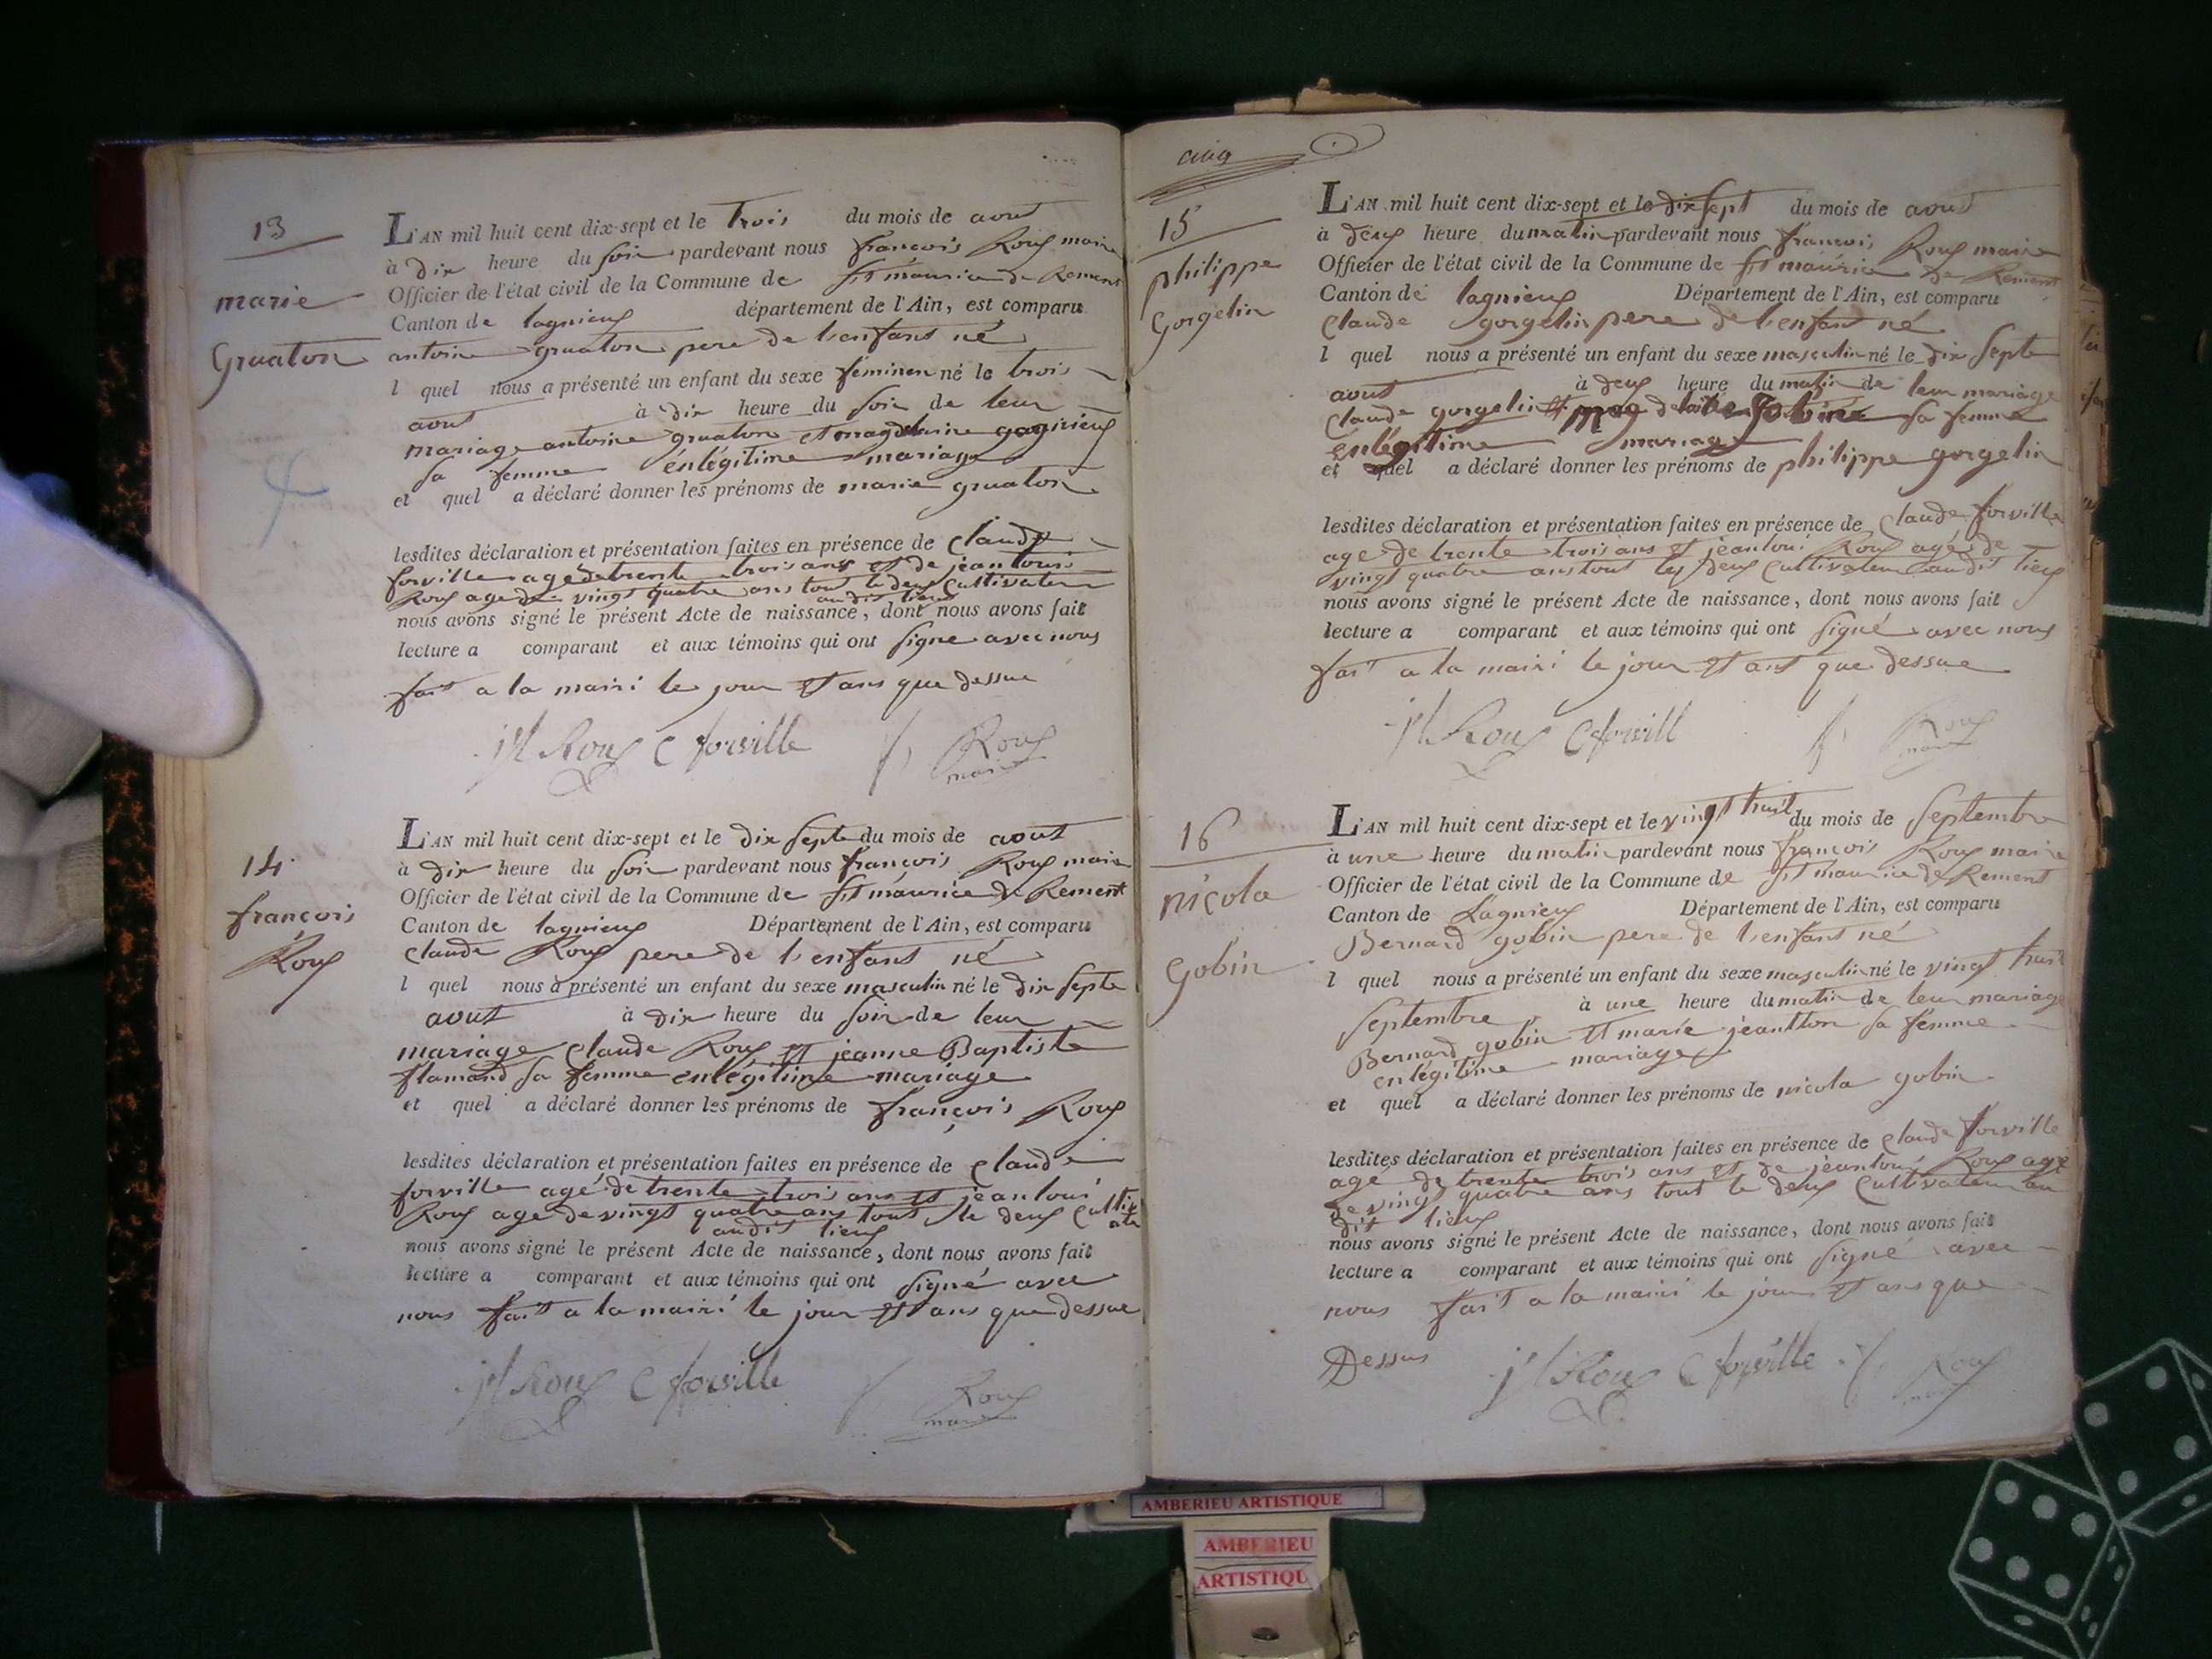 13
marie
Gruaton
L'AN mil huit cent dix-sept et le Trois du mois de aout
à dix heure du soir pardevant nous françois Roux maire
Officier de l'état civil de la Commune de St maurice de Remens
Canton de lagnieux département de l'Ain, est comparu
antoine gruaton pere de l'enfant né
l quel nous a présenté un enfant du sexe féminen né le trois
aout à dix heure du soir de leur
mariage antoine gruaton et magdelaine
sa femme enlégitime mariage
et quel a déclaré donner les prénoms de marie gruaton
lesdites déclaration et présentation faites en présence de claude
forville age de trente trois ans et de jean loui
Roux age de vingt quatre ans tout le deux Cultivateur
au dit lieux
nous avons signé le présent Acte de naissance, dont nous avons fait
lecture a comparant et aux témoins qui ont signe avec nous
fait a la mairi le jour et ans que dessue
jl Roux C forville f Roux
maire
14
françois
Roux
L'AN mil huit cent dix-sept et le dix septe du mois de aout
à dix heure du soir pardevant nous françois Roux maire
Officier de l'état civil de la Commune de St maurice de Rement
Canton de lagnieux Département de l'Ain, est comparu
claude Roux pere de l'enfant né
l quel nous a présenté un enfant du sexe masculin né le dix septe
aout à dix heure du soir de leur
mariage claude Roux et jeanne Baptiste
flamand sa femme enlégitime mariage
et quel a déclaré donner les prénoms de françois Roux
lesdites déclaration et présentation faites en présence de claude
forville agé de trente trois ans et jean loui
Roux age de vingt quatre ans tout le deux Cultivate
au dit lieux
nous avons signé le présent Acte de naissance, dont nous avons fait
lecture a comparant et aux témoins qui ont signé avec
nous fait a la mairi le jour et ans que dessue
jl Roux C forville f Roux
maire
cinq
15
philippe
Gorgelin
L'AN mil huit cent dix-sept et le dix sept du mois de aout
à deux heure du matin pardevant nous françois Roux maire
Officier de l'état civil de la Commune de St maurice de Rement
Canton de lagnieux Département de l'Ain, est comparu
claude gorgelin pere de l'enfant né
l quel nous a présenté un enfant du sexe masculin né le dix septe
aout à deux heure du matin de leur mariage
claude gorgelin et gobine sa femme
enlégitime mariage
et quel a déclaré donner les prénoms de philippe gorgelin
lesdites déclaration et présentation faites en présence de claude forville
age de trente trois ans et jean loui Roux agé de
vingt quatre ans tout les deux cultivateur au dit lieux
nous avons signé le présent Acte de naissance, dont nous avons fait
lecture a comparant et aux témoins qui ont signé avec nous
fait a la mairi le jour et ans que dessue
jl Roux C forvill f Roux
maire
16
nicola
gobin
L'AN mil huit cent dix-sept et le vingt huit du mois de Septembre
à une heure du matin pardevant nous françois Roux maire
Officier de l'état civil de la Commune de St maurice de Rement
Canton de Lagnieux Département de l'Ain, est comparu
Bernard gobin pere de l'enfant né
l quel nous a présenté un enfant du sexe masculin né le vingt huit
Septembre à une heure du matin de leur mariage
Bernard gobin et marie jeantton sa femme
enlégitime mariage
et quel a déclaré donner les prénoms de nicola gobin
lesdites déclaration et présentation faites en présence de claude forville
agé de trente trois ans et de jean loui Roux agé
de vingt quatre ans tout le deux Cultivateur au
dit lieux
nous avons signé le présent Acte de naissance, dont nous avons fait
lecture a comparant et aux témoins qui ont signé avec
nous fait a la mairi le jour et ans que
Dessus
jl Roux C forville f Roux
maire
AMBERIEU ARTISTIQUE
AMBERIEU
ARTISTIQU